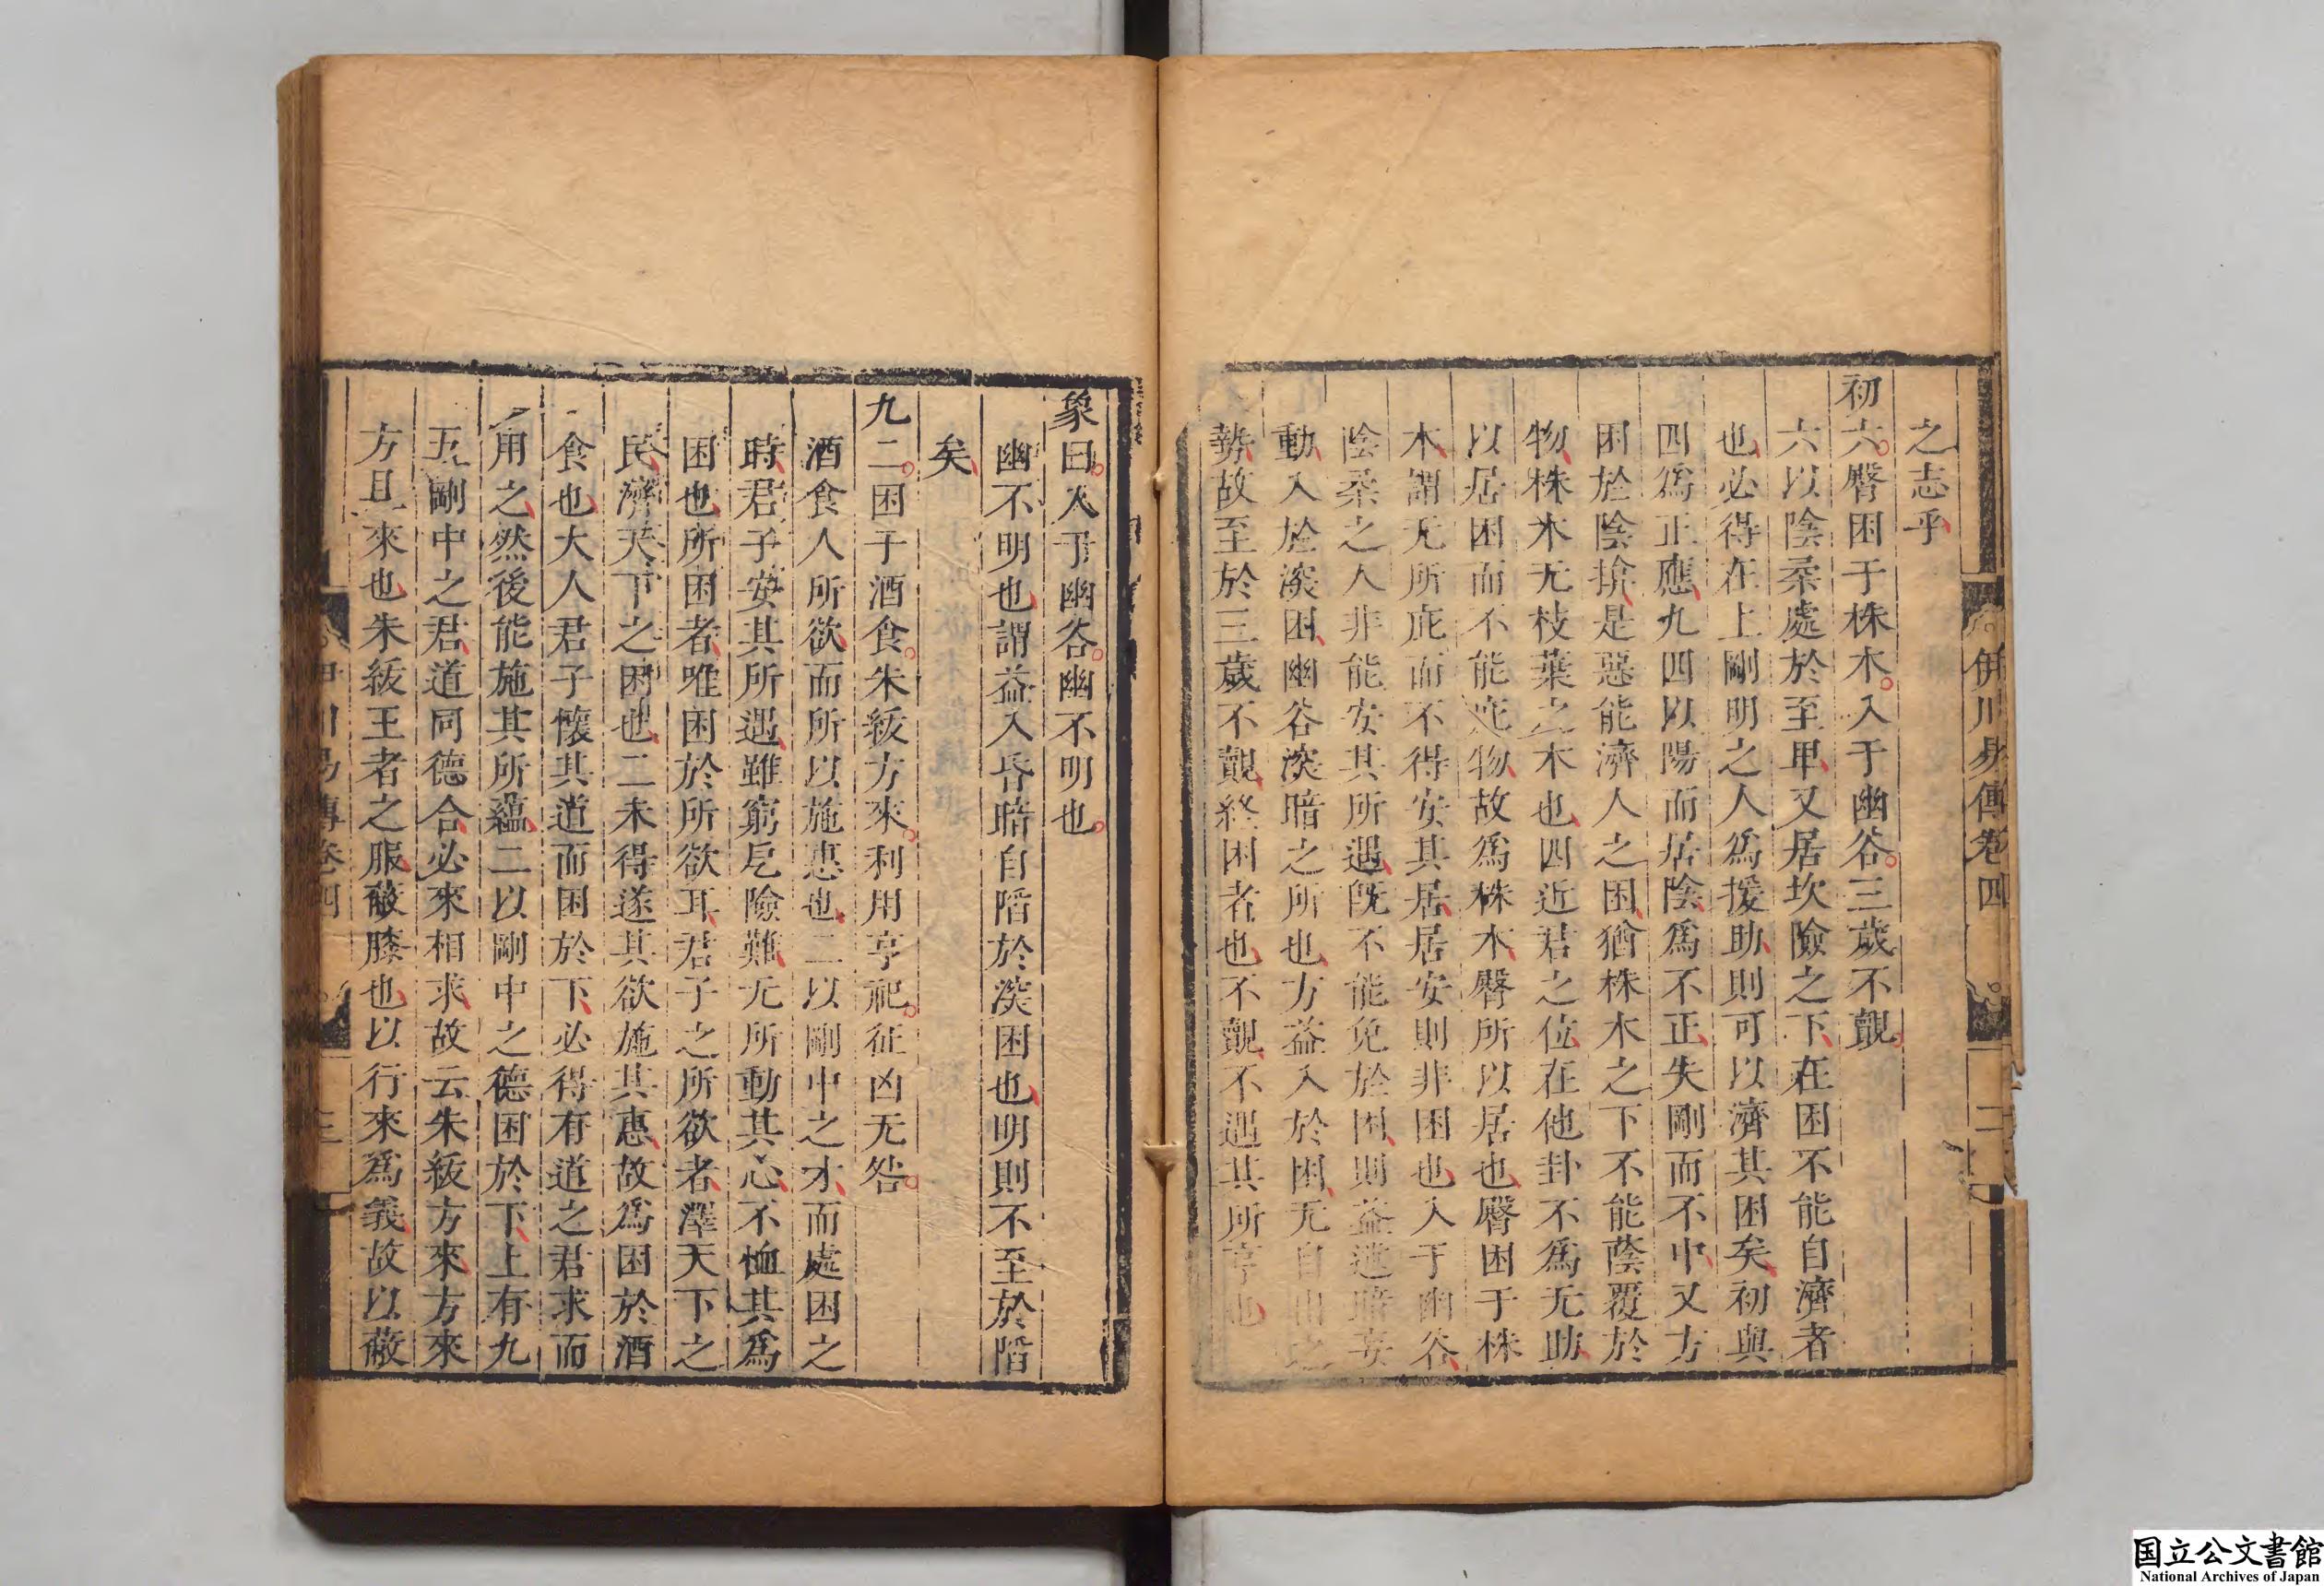 伊川易傳卷四
二
之志乎
初六臀困于株木入于幽谷三歲不覿
六以陰柔處於至卑又居坎險之下在困不能自濟者
也必得在上剛明之人爲援助則可以濟其困矣初與
四爲正應九四以陽而居陰爲不正失剛而不中又方
困於陰揜是惡能濟人之困猶株木之下不能蔭覆於
物株木无枝葉之木也四近君之位在他卦不爲无助
以居困而不能庇物故爲株木臀所以居也臀困于株
木謂无所庇而不得安其居居安則非困也入于幽谷
陰柔之人非能安其所遇旣不能免於困則益迷暗妄
動入於深困幽谷深暗之所也方益入於困无自出之
勢故至於三歲不覿終困者也不覿不遇其所亨也
象曰入于幽谷幽不明也
幽不明也謂益入昏暗自陷於深困也明則不至於陷
矣
九二困于酒食朱紱方來利用亨祀征凶无咎
酒食人所欲而所以施惠也二以剛中之才而處困之
時君子安其所遇雖窮戹險難无所動其心不恤其爲
困也所困者唯困於所欲耳君子之所欲者澤天下之
民濟天下之困也二未得遂其欲施其惠故爲困於酒
食也大人君子懷其道而困於下必得有道之君求而
用之然後能施其所蘊二以剛中之德困於下上有九
五剛中之君道同德合必來相求故云朱紱方來方來
方且來也朱紱王者之服蔽膝也以行來爲義故以蔽
伊川易傳卷四
三
国立公文書館
National Archives of Japan